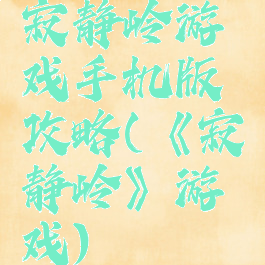 寂静岭游
戏手机版
攻略(《寂
静岭》游
戏)